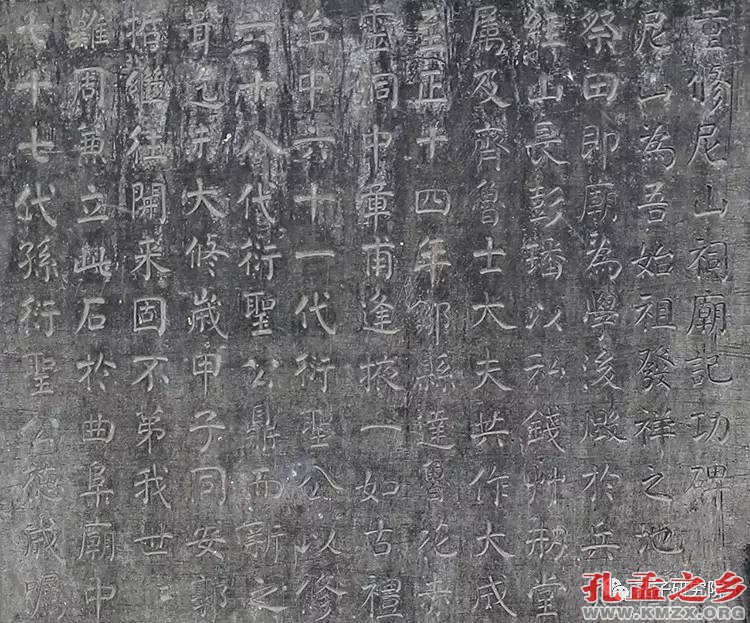 重修尼山祠廟記功碑
尼山為吾始祖發祥之地
祭田即廟為學後燬於兵
山長彭璠以私錢艸刱堂
属及齊魯士大夫共作大成
至正十四年鄒縣達魯花赤
雲洞中章甫逢掖一如古禮
治中六十一代衍聖公以修
六十八代衍聖公鼎而新之
葺迄未大修嵗甲子同安郭
括繼往開来固不第我世
難周兼立此石於曲阜廟中
七十七代孫衍聖公德成
孔孟之乡
WWW.KMZX.ORG